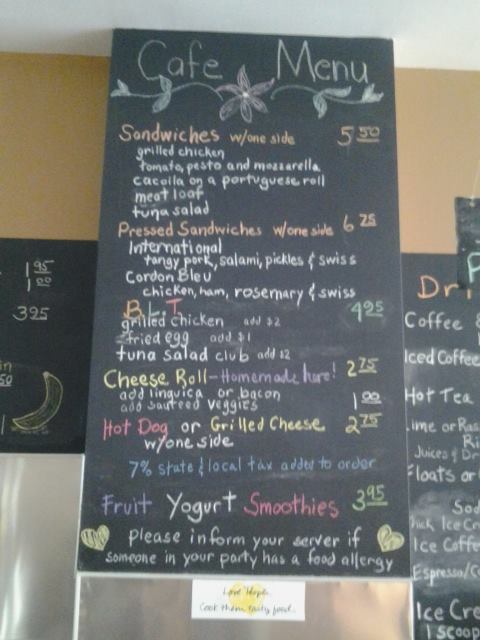 Cafe Menu
Sandwiches w/one side 5 50
grilled chicken
tomato, pesto and mozzarella
cacoila on a portuguese roll
meat loaf
tuna salad
Pressed Sandwiches w/one side 6 75
International
tangy pork, salami, pickles & swiss
Cordon Bleu
chicken, ham, rosemary & swiss
B.L.T 4 95
grilled chicken add $2
fried egg add $1
tuna salad club add $2
Cheese Roll - Homemade here! 2 75
add linguica or bacon 1 00
add sauteed veggies
Hot Dog or Grilled Cheese 2 75
w/one side
7% state & local tax added to order
Fruit Yogurt Smoothies 3 95
please inform your server if
someone in your party has a food allergy
Cook them tasty food.
1 95
1 00
3 95
50
Dri
Coffee &
Iced Coffee
Hot Tea
ime or Ras
Ri
Juices & Dr
Floats or
Sod
hick Ice Cr
Ice Coffe
Espresso/C
Ice Cre
1 scoop